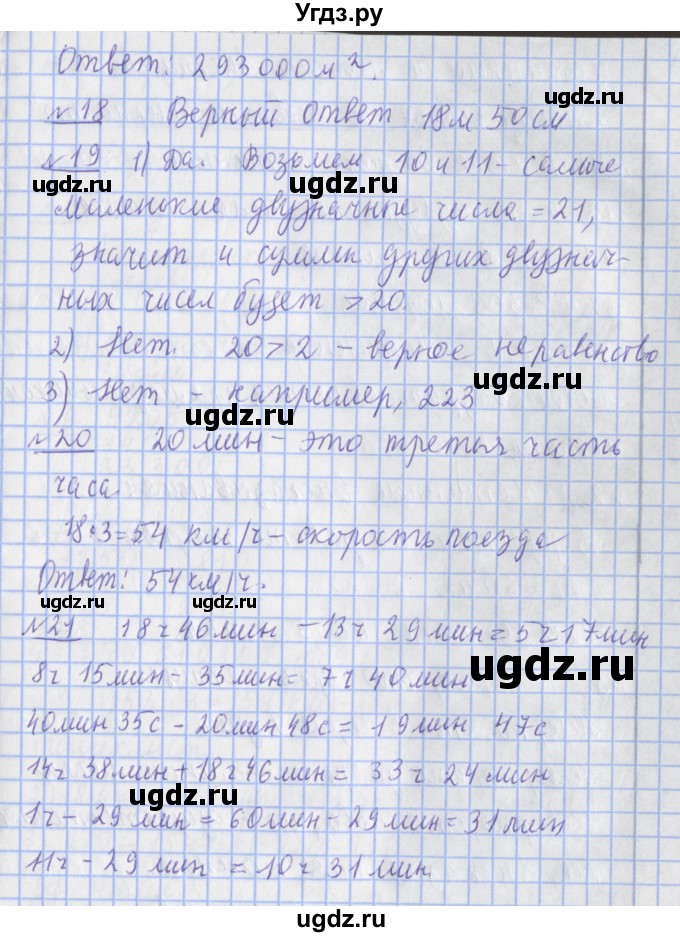 Угдз.ру
Ответ: 293000 м².
ugdz.ru
№18 Верный ответ 18м 50см
№19 1) Да. Возьмем 10 и 11 - самые
ugdz.ru ugdz.ru
маленькие двузначные числа = 21,
значит и сумма других двузнач-
ных чисел будет > 20.
ugdz.ru
2) Нет. 20 > 2 - верное неравенство
3) Нет - например, 223
ugdz.ru
№20 20 мин - это третья часть
ugdz.ru
часа
18·3=54 км/ч - скорость поезда
Ответ: 54 км/ч.
ugdz.ru ugdz.ru
№21 18ч 46мин - 13ч 29мин = 5ч 17мин
ugdz.ru
8ч 15мин - 35мин = 7ч 40мин
40мин 35с - 20мин 48с = 19мин 47с
14ч 38мин + 18ч 46мин = 33ч 24мин
ugdz.ru
1ч - 29мин = 60мин - 29мин = 31мин
11ч - 29мин = 10ч 31мин.
ugdz.ru ugdz.ru
ugdz.ru